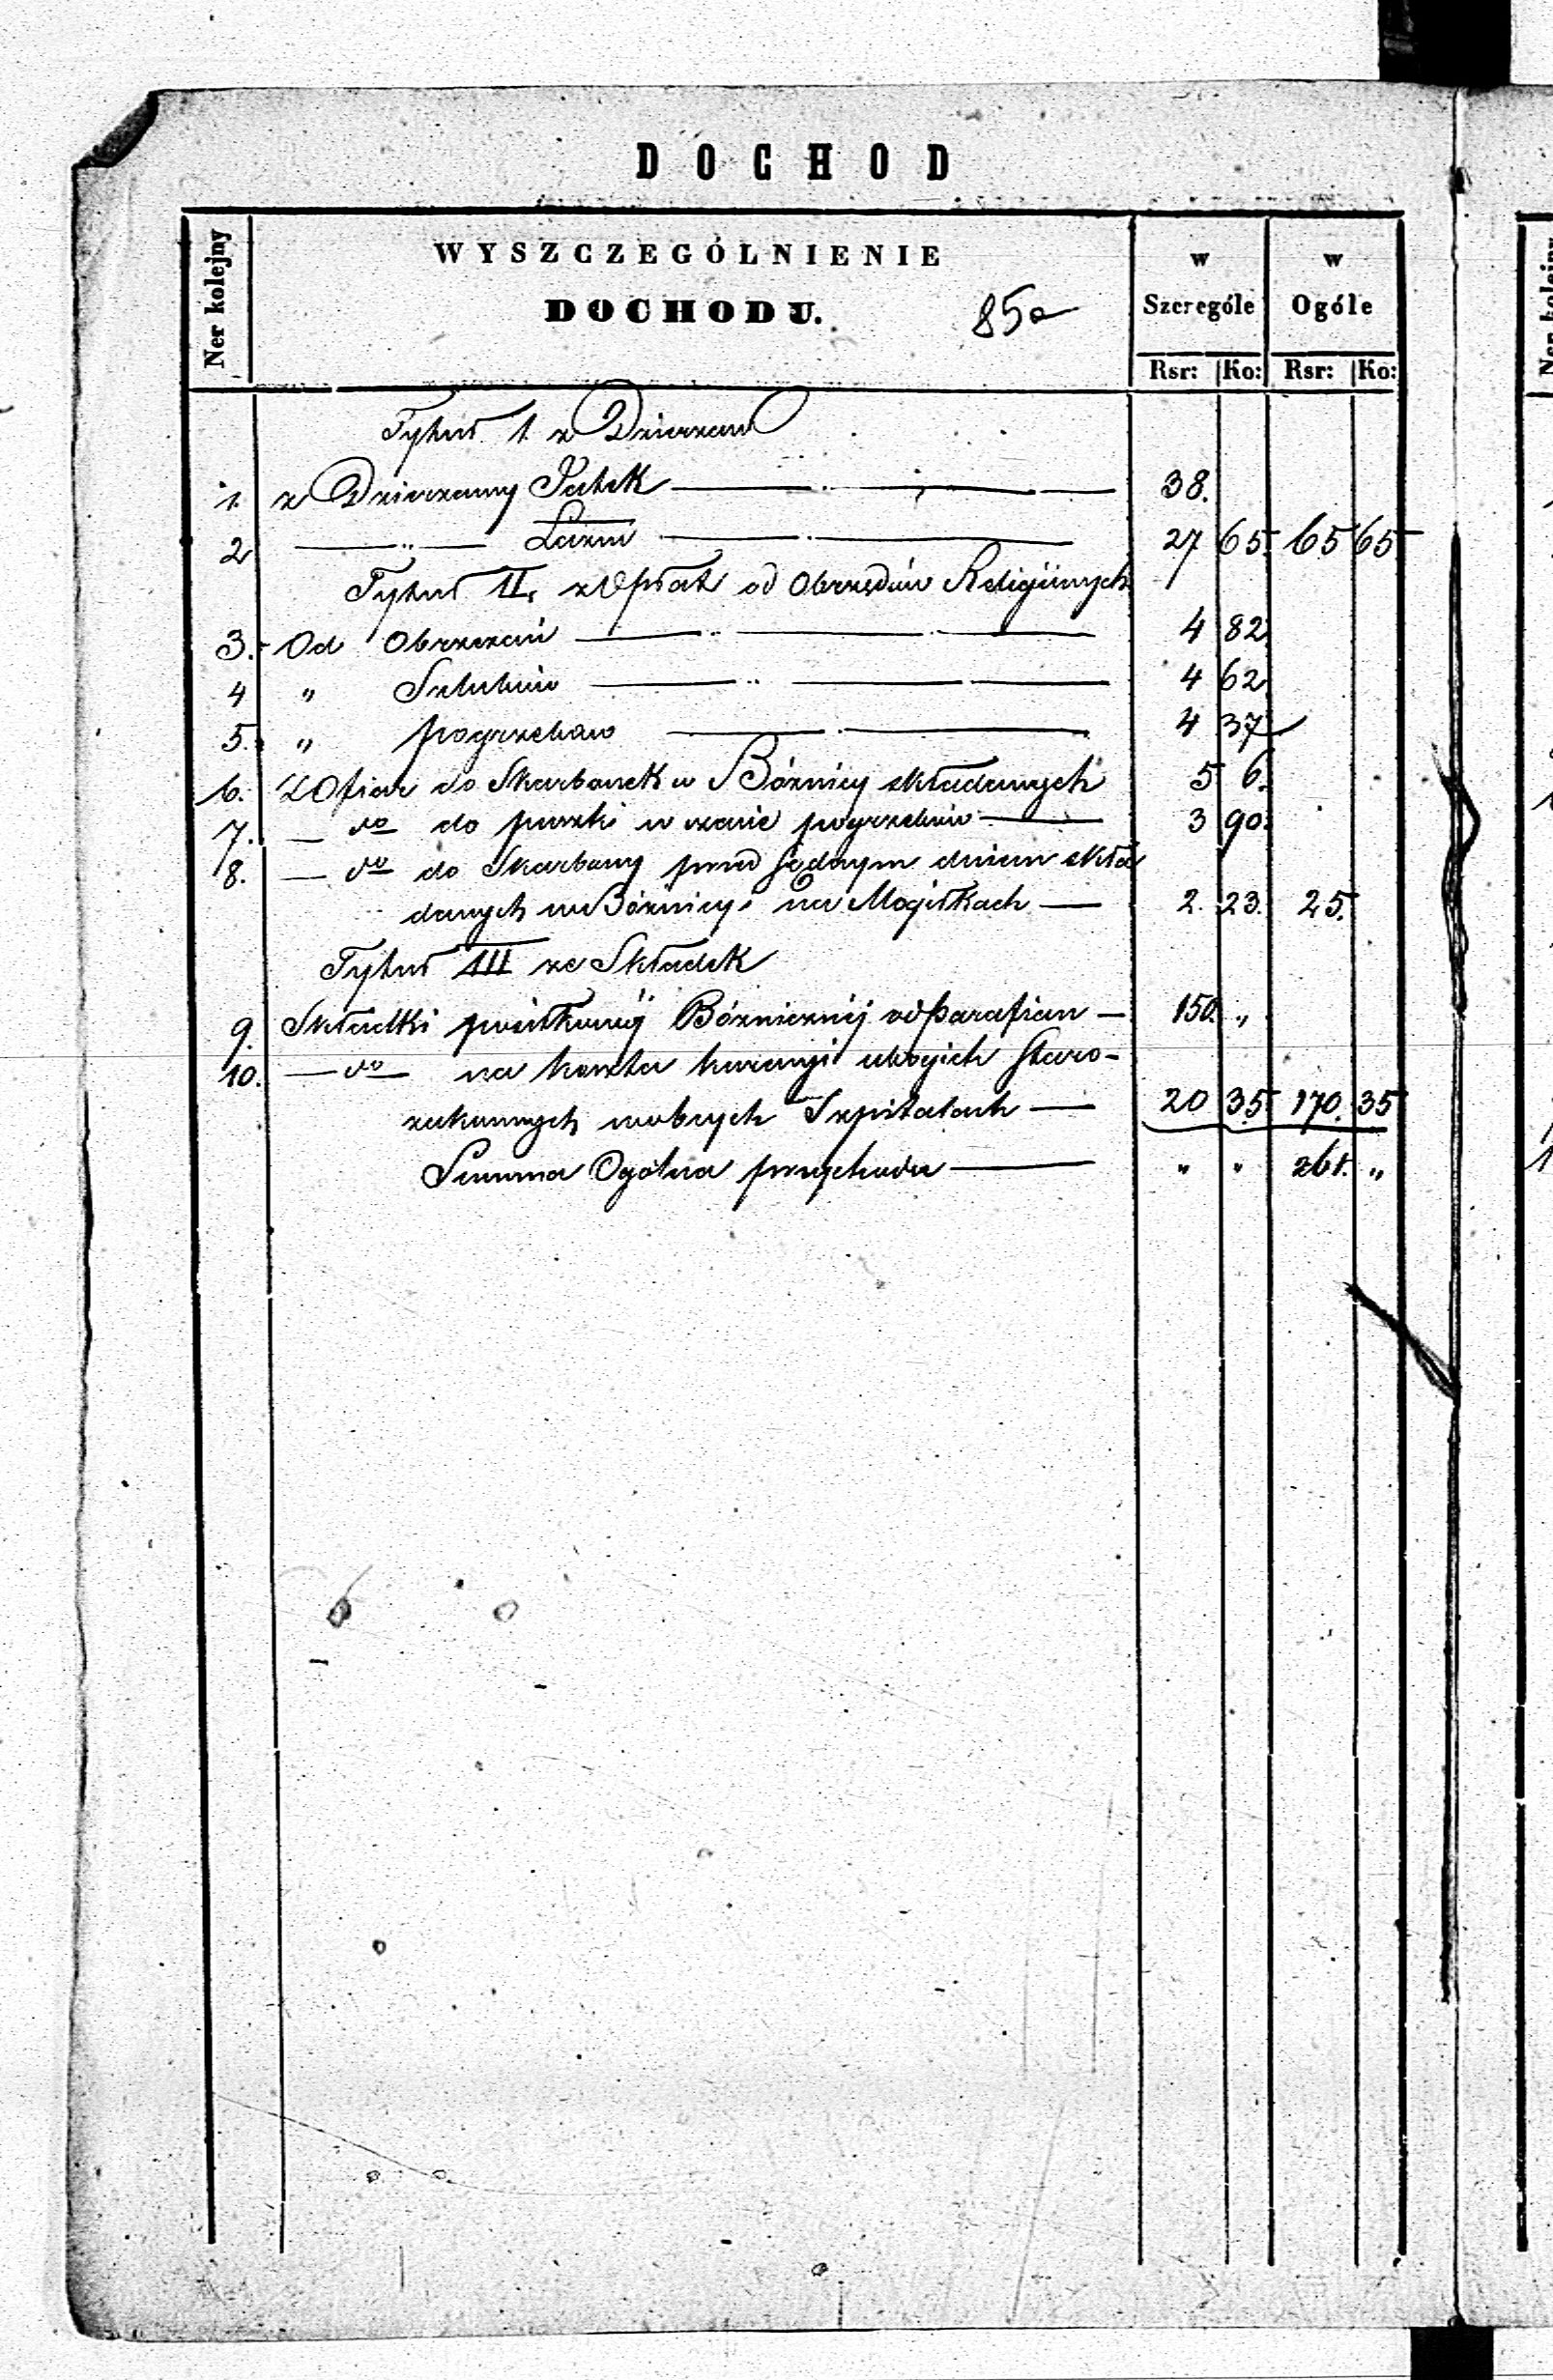 DOCHOD
Ner kolejny
WYSZCZEGÓLNIENIE
DOCHODU.
85a
w Szczególe
w Ogóle
Rsr: Ko: Rsr: Ko:
Tytuł 1. z Dzierzaw
1. z Dzierzawy Jatek 38.
2 „ Łazni 27 65. 65 65
Tytuł II. z Opłat od Obrzędów Religijnych
3. Od Obrzezań 4 82.
4 „ Szlubów 4 62
5. „ pogrzebów 4 37
6. Z Ofiar do Skarbonek w Bóżnicy składanych 5 6.
7. — do do puszki w czasie pogrzebów 3 90.
8. — do do Skarbony przed sądnym dniem skła
danych w Bóżnicy i na Mogiłkach — 2. 23. 25.
Tytuł III ze Składek
9. Składki Bóżniczniéj od Parafian — 150. „
10. — do na koszta kuracyi ubogich Staro-
zakonnych w obcych Szpitalach — 20 35 170. 35
Summa Ogólna przychodu — „ „ 261. „